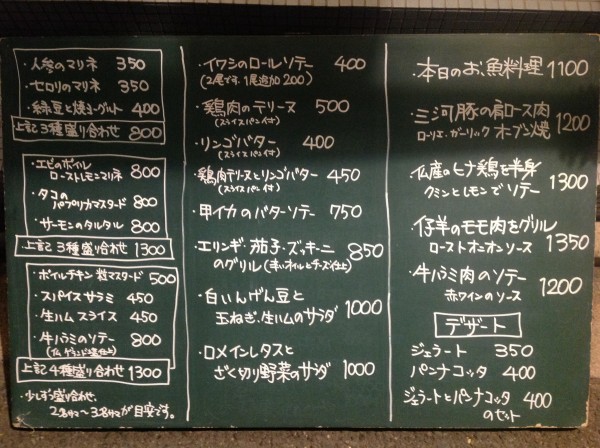 ・人参のマリネ 350
・セロリのマリネ 350
・緑豆と焼ヨーグルト 400
上記3種盛り合わせ 800
・エビのボイル
ローストレモンマリネ 800
・タコの
パプリカマスタード 800
・サーモンのタルタル 800
上記3種盛り合わせ 1300
・ボイルチキン 粒マスタード 500
・スパイスサラミ 450
・生ハムスライス 450
・牛ハラミのソテー 800
上記4種盛り合わせ 1300
・少しずつ盛り合わせ、
2名サマ〜3名サマが目安です。
・イワシのロールソテー 400
(2尾です、1尾追加200)
・鶏肉のテリーヌ 500
(スライスパン付)
・リンゴバター 400
(スライスパン付)
・鶏肉テリーヌとリンゴバター 450
(スライスパン付)
・甲イカのバターソテー 750
・エリンギ・茄子・ズッキーニ
のグリル(辛いオイルとチーズ仕上) 850
・白いんげん豆と
玉ねぎ、生ハムのサラダ 1000
・ロメインレタスと
ざく切り野菜のサラダ 1000
・本日のお魚料理 1100
・三河豚の肩ロース肉
ローリエ・ガーリック オーブン焼 1200
・仏産のヒナ鶏を半身
クミンとレモンでソテー 1300
・仔羊のモモ肉をグリル
ローストオニオンソース 1350
・牛ハラミ肉のソテー
赤ワインのソース 1200
デザート
ジェラート 350
パンナコッタ 400
ジェラートとパンナコッタ 400
のセット